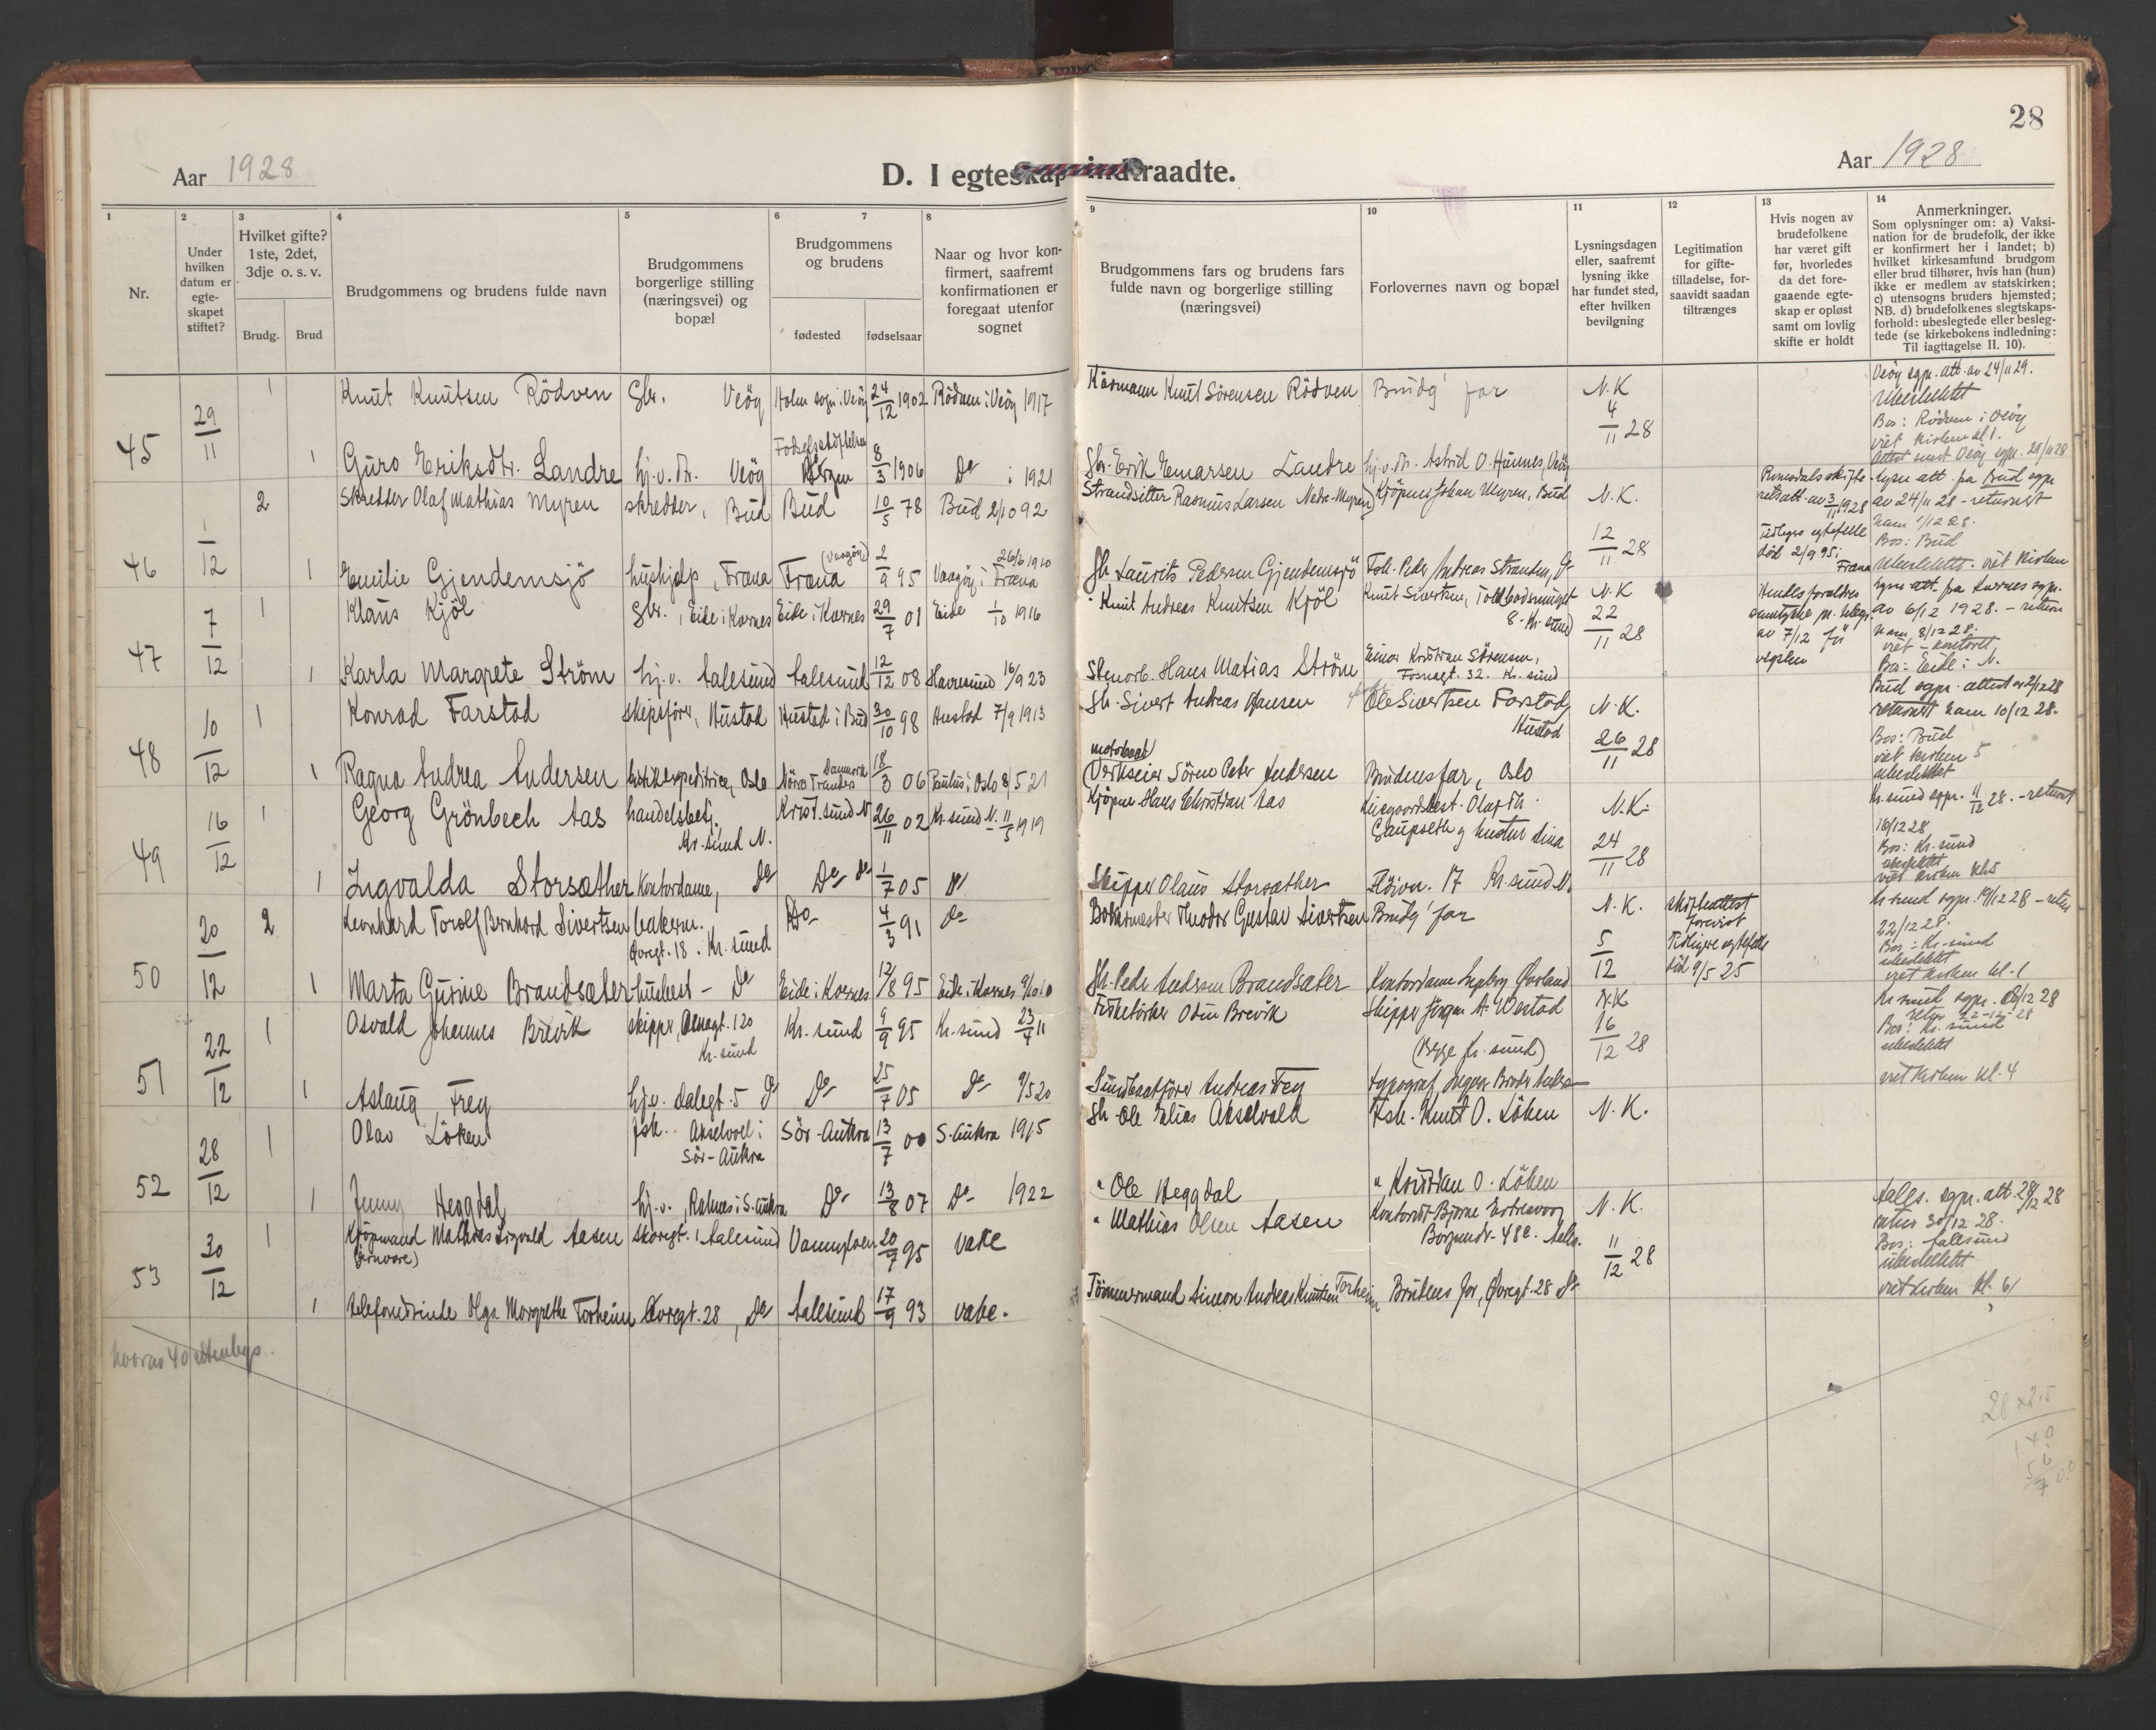 28
Aar 1928
D. I egteskap indtraadte.
Aar 1928
1
2
3
4
5
6
7
8
9
10
11
12
13
14
Nr.
Under hvilken datum er egte-skapet stiftet?
Hvilket gifte? 1ste, 2det, 3dje o. s. v.
Brudg.
Brud
Brudgommens og brudens fulde navn
Brudgommens borgerlige stilling (næringsvei) og bopæl
Brudgommens og brudens
fødested
fødselsaar
Naar og hvor kon-firmert, saafremt konfirmationen er foregaat utenfor sognet
Brudgommens fars og brudens fars fulde navn og borgerlige stilling (næringsvei)
Forlovernes navn og bopæl
Lysningsdagen eller, saafremt lysning ikke har fundet sted, efter hvilken bevilgning
Legitimation for gifte-tilladelse, for-saavidt saadan tiltrænges
Hvis nogen av brudefolkene har været gift før, hvorledes da det fore-gaaende egte-skap er opløst samt om lovlig skifte er holdt
Anmerkninger.
Som oplysninger om: a) Vaksi-nation for de brudefolk, der ikke er konfirmert her i landet; b) hvilket kirkesamfund brudgom eller brud tilhører, hvis han (hun) ikke er medlem av statskirken; c) utensogns bruders hjemsted; NB. d) brudefolkenes slegtskaps-forhold: ubeslegtede eller besleg-tede (se kirkebokens indledning: Til iagttagelse II. 10).
45 29/11
1 Knut Knutsen Rödven Gbr. Veöy Holm sogn i Veöy 24/12 1902 Rödven i Veöy 1917
Kårmann Knut Sörensen Rödven Brudg' far N.K 4/11 28
Veöy sgpr. att. av 24/11 29.
Ubeslektet
Bos: Rödven i Veöy
viet kirken kl 1.
1 Guro Eriksdtr. Landre hj.v.dr. Veöy Födselsstiftelsen Bergen 8/3 1906 Do i 1921
Gbr. Erik Einarsen Landre hj.v.dr. Astrid O. Hunnes, Veöy
46 1/12
2 Skredder Olaf Mathias Myren skredder, Bud Bud 10/5 78 Bud 2/10 92
Strandsitter Rasmus Larsen Nedre-Myren Kjöpm Johan Myren, Bud N.K. 12/11 28
Romsdals skifte-
rettsatt. av 3/11 1928
Tidligere egtefelle
död 2/9 95 i
Fræna
Lysn att. fra Bud sgpr
av 24/11 28 - returnert
ham 1/12 28.
Bos: Bud
1 Emilie Gjendemsjö hushjelp, Fræna Fræna (Vaagöy) 2/9 95 Vaagöy i Fræna 26/6 1910
Gb. Laurits Pedersen Gjendemsjö Fisk. Peder Andreas Stranden, Do
47 7/12
1 Klaus Kjöl Gbr., Eide i Kornes Eide i Kornes 29/7 01 Eide 1/10 1916
" Knut Andreas Knutsen Kjöl Knut Sivertsen, Toldbodsmuget 8. Kr. sund N.K 22/11 28
av 7/12 för
vigselen
av 6/12 1928. - return
ham 8/12 28.
viet - kontoret
Bos: Eide i N.
1 Karla Margrete Ström hj.v. Aalesund Aalesund 12/12 08 Havresund 16/9 23
Stenarb. Hans Matias Ström Einar Kristian Sörensen, Fosnagt. 32. Kr. sund
48 10/12
1 Konrad Farstad skipsförer, Hustad Hustad i Bud 30/10 98 Hustad 7/9 1913
Gb. Sivert Andreas Hansen Ole Sivertsen Farstad, Hustad N.K. 26/11 28
Bud sgpr. attest av 2/12 28
returnert ham 10/12 28.
Bos: Bud
viet kirken 5
ubeslektet
1 Ragna Andrea Andersen butikexpeditrice, Oslo Nörre Tranders Danmark 18/3 06 Paulus i Oslo 8/5 21
motorbaat
Verkseier Sören Peter Andersen Brudens far, Oslo
49 16/12
1 Georg Grönbech Aas handelsbetj. Kr. sund N. Krist.sund N 26/11 02 Kr. sund N. 11/5 1919
Kjöpm Hans Christian Aas Gaupseth g hustru Lina N.K. 24/11 28
Kr. sund sgpr. 11/12 28. - returnt
16/12 28
Bos: Kr. sund
ubeslektet
viet kirken kl 5
1 Ingvalda Storsæther kontordame, Do Do 1/7 05 Do
Skipper Olaus Storsæther Flöivn. 17 Kr. sund N.
50 20/12
2 Leonhard Torolf Bernhard Sivertsen bakerm. Övregt. 18. Kr. sund Do 4/3 91 Do
Bakermester Theodor Gustav Sivertsen Brudg' far N.K. 5/12
skifteattest
forevist
Tidligere egtefelle
död 9/5 25
Kr sund sgpr. 19/12 28 - retur
22/12 28.
Bos: Kr. sund
ubeslektet
viet kirken kl. 1
1 Marta Gurine Brandsæter husbest - Do Eide i Kornes 12/8 95 Eide i Kornes
Gb. Peder Andersen Brandsæter Kontordame Ingborg Överland
51 22/12
1 Osvald Johannes Brevik skipper, 120 Kr. sund Kr. sund 9/9 95 Kr. sund 23/7 11
Odin Brevik Skipper Jörgen A. Westad (Begge Kr. sund) N.K 16/12 28
Kr sund sgpr. 28
retur 22-12-28
Bos: Kr. sund
ubeslektet
viet kirken kl. 4
1 Aslaug Frey hj.v. Dalegt. 5 Do Do 25/7 05 Do 9/5 20
Sundbaatförer Andreas Frey typograf
52 28/12
1 Olav Löken fsk. Akselvoll i Sör-Aukra Sör-Aukra 13/7 00 S. Aukra 1915
Gb. Ole Elias Akselvold Fsk. Knut O. Löken N.K.
1 Jenny Heggdal hj.v., i S. Aukra Do 13/8 07 Do 1922
" Ole Heggdal " Kristian O. Löken
53 30/12
1 Kjöpmand Mathias Sigvald Aasen (jernvare) skaregt. i Aalesund Vannylven 20/7 95 vake
" Mathias Olsen Aasen Kontorist Bjarne Borgundv. 48 c. Aales. N.K. 11/12 28
Aales. sgpr. att. 28/12 28
retur 30/12 28.
Bos: Aalesund
ubeslektet
viet kirken kl. 6
1 telefonistinde Olga Margrethe Torheim Övregt. 28, Do Aalesund 17/9 93 vake.
Tömmermand Simeon Andreas Knutsen Torheim Brudens far, Övregt. 28 Do
hvorav 40 utenbys.
28 x 25
140
56
700